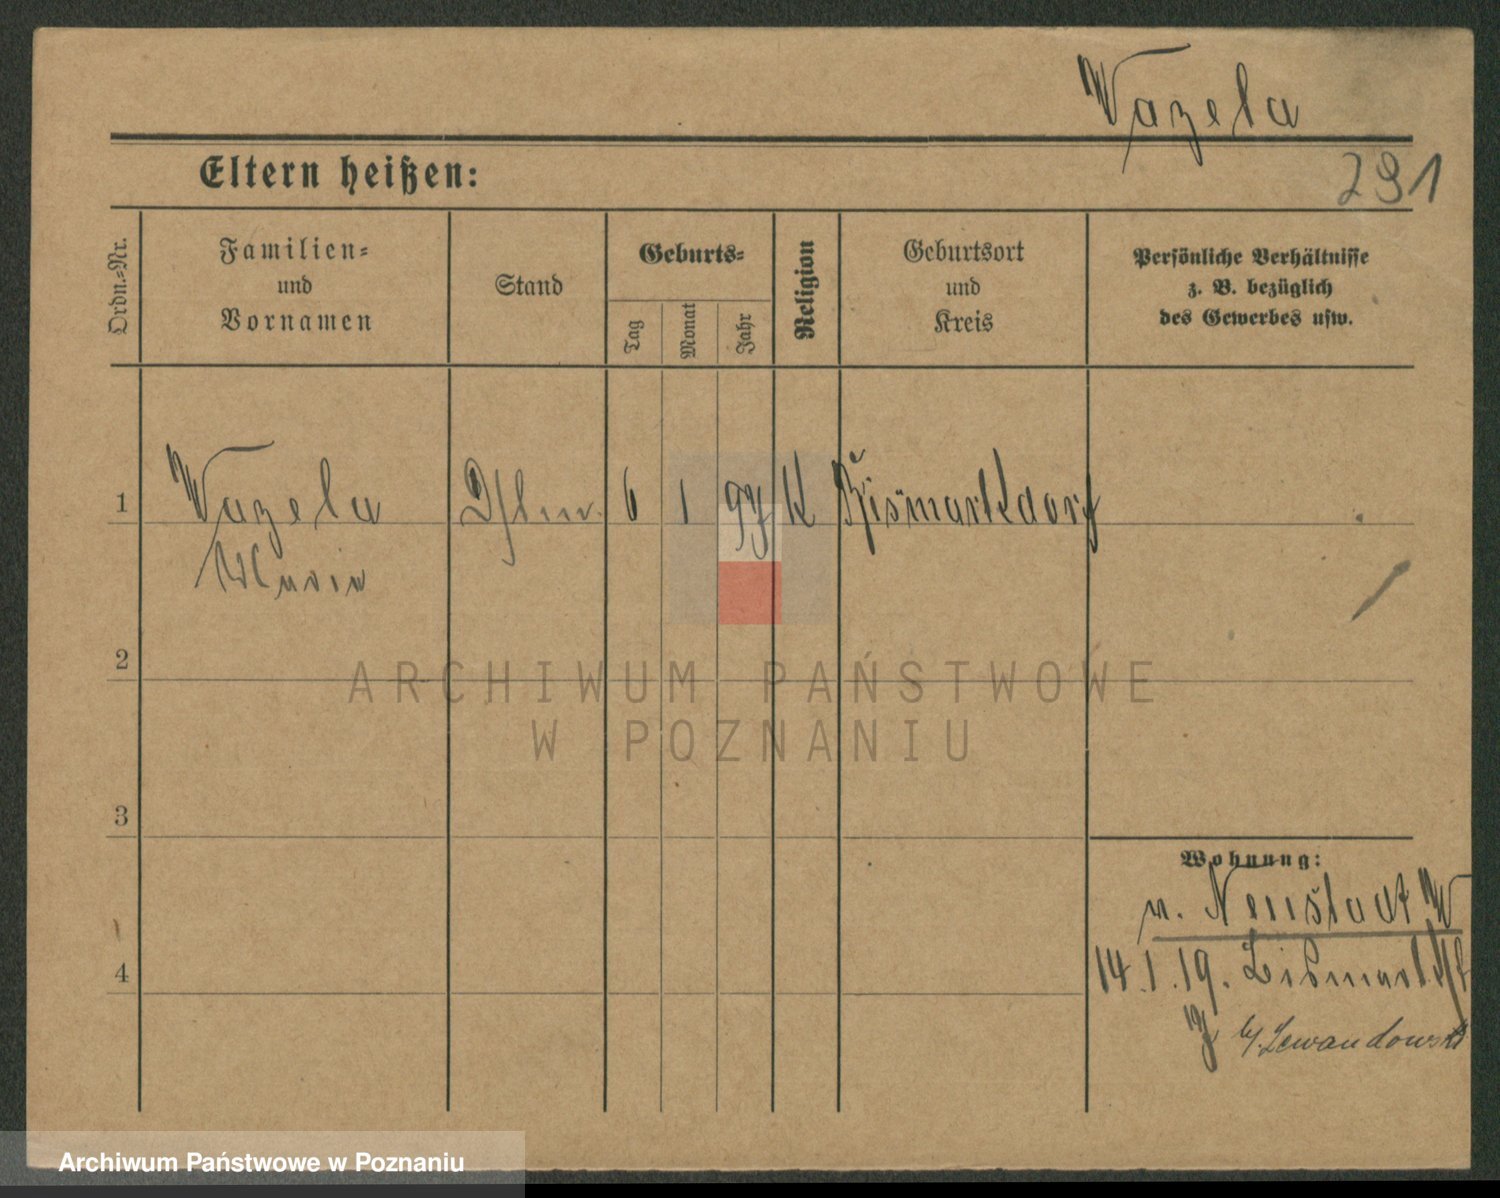 Wazela
291
Eltern heißen:
Ordn.-Nr.
Familien-
und
Vornamen
Stand
Geburts-
Tag
Monat
Jahr
Religion
Geburtsort
und
Kreis
Persönliche Verhältnisse
z. B. bezüglich
des Gewerbes usw.
1
Wazela
6
1
97
K
Bismarkdorf
Maria
2
ARCHIWUM PAŃSTWOWE
W POZNANIU
3
Wohnung:
n. Neustadt W
4
14.1.19.
b/. Lewandowski
Archiwum Państwowe w Poznaniu